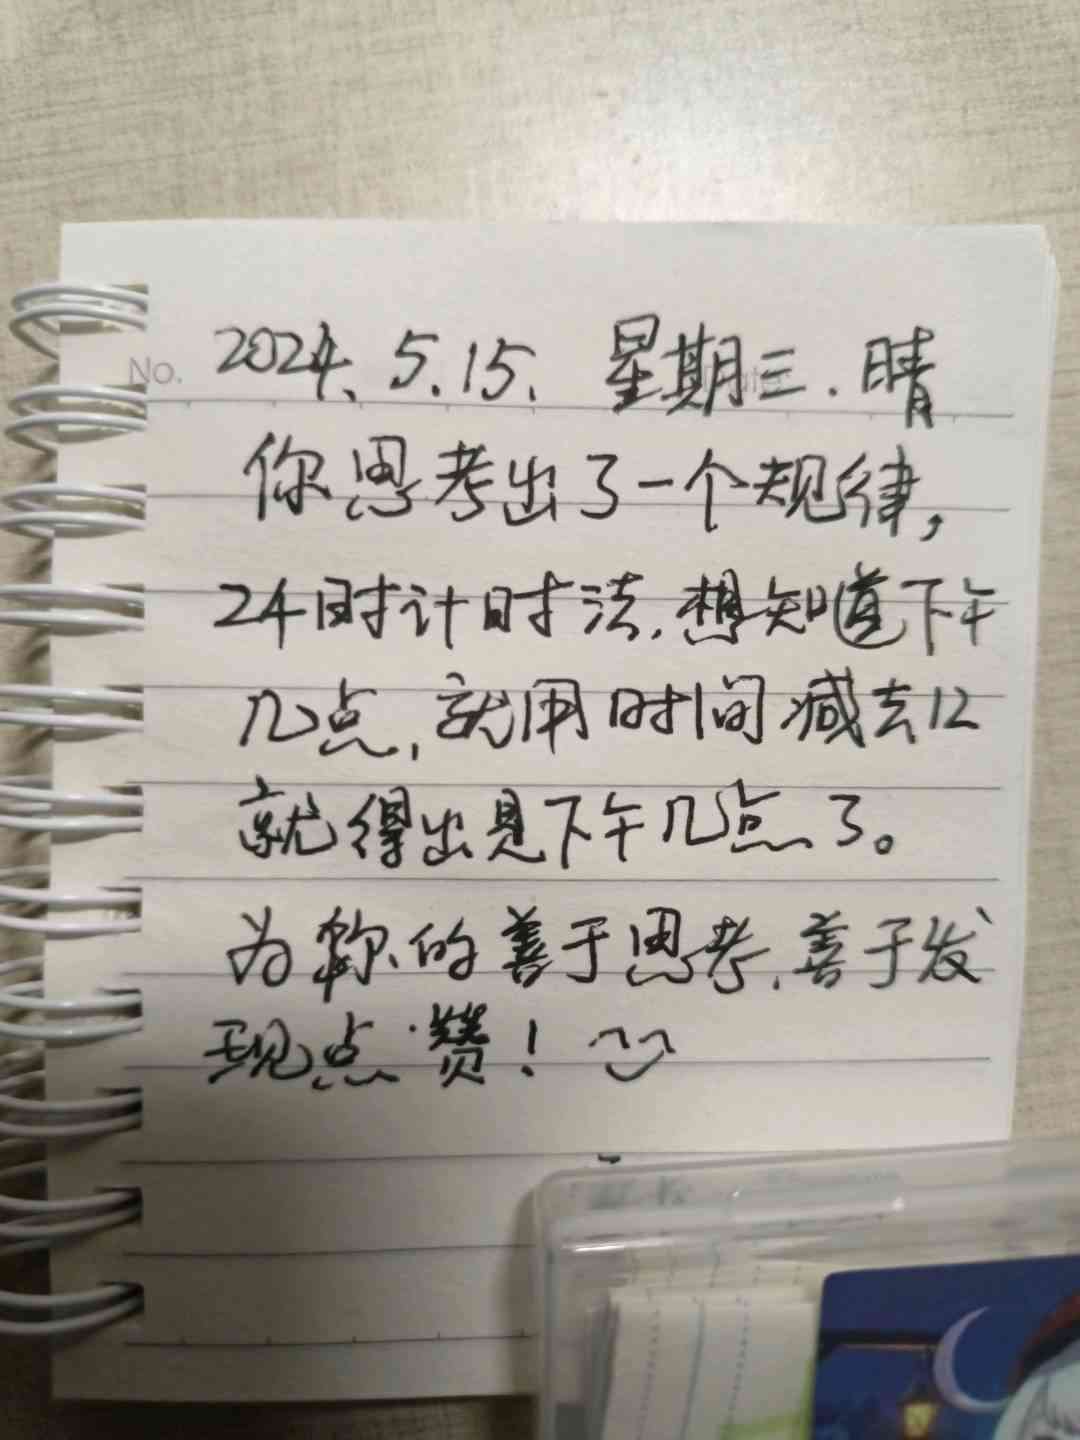 No.
2024.5.15. 星期三.晴
你思考出了一个规律,
24时计时法,想知道下午
几点,就用时间减去12
就得出是下午几点了。
为你的善于思考,善于发
现点赞!